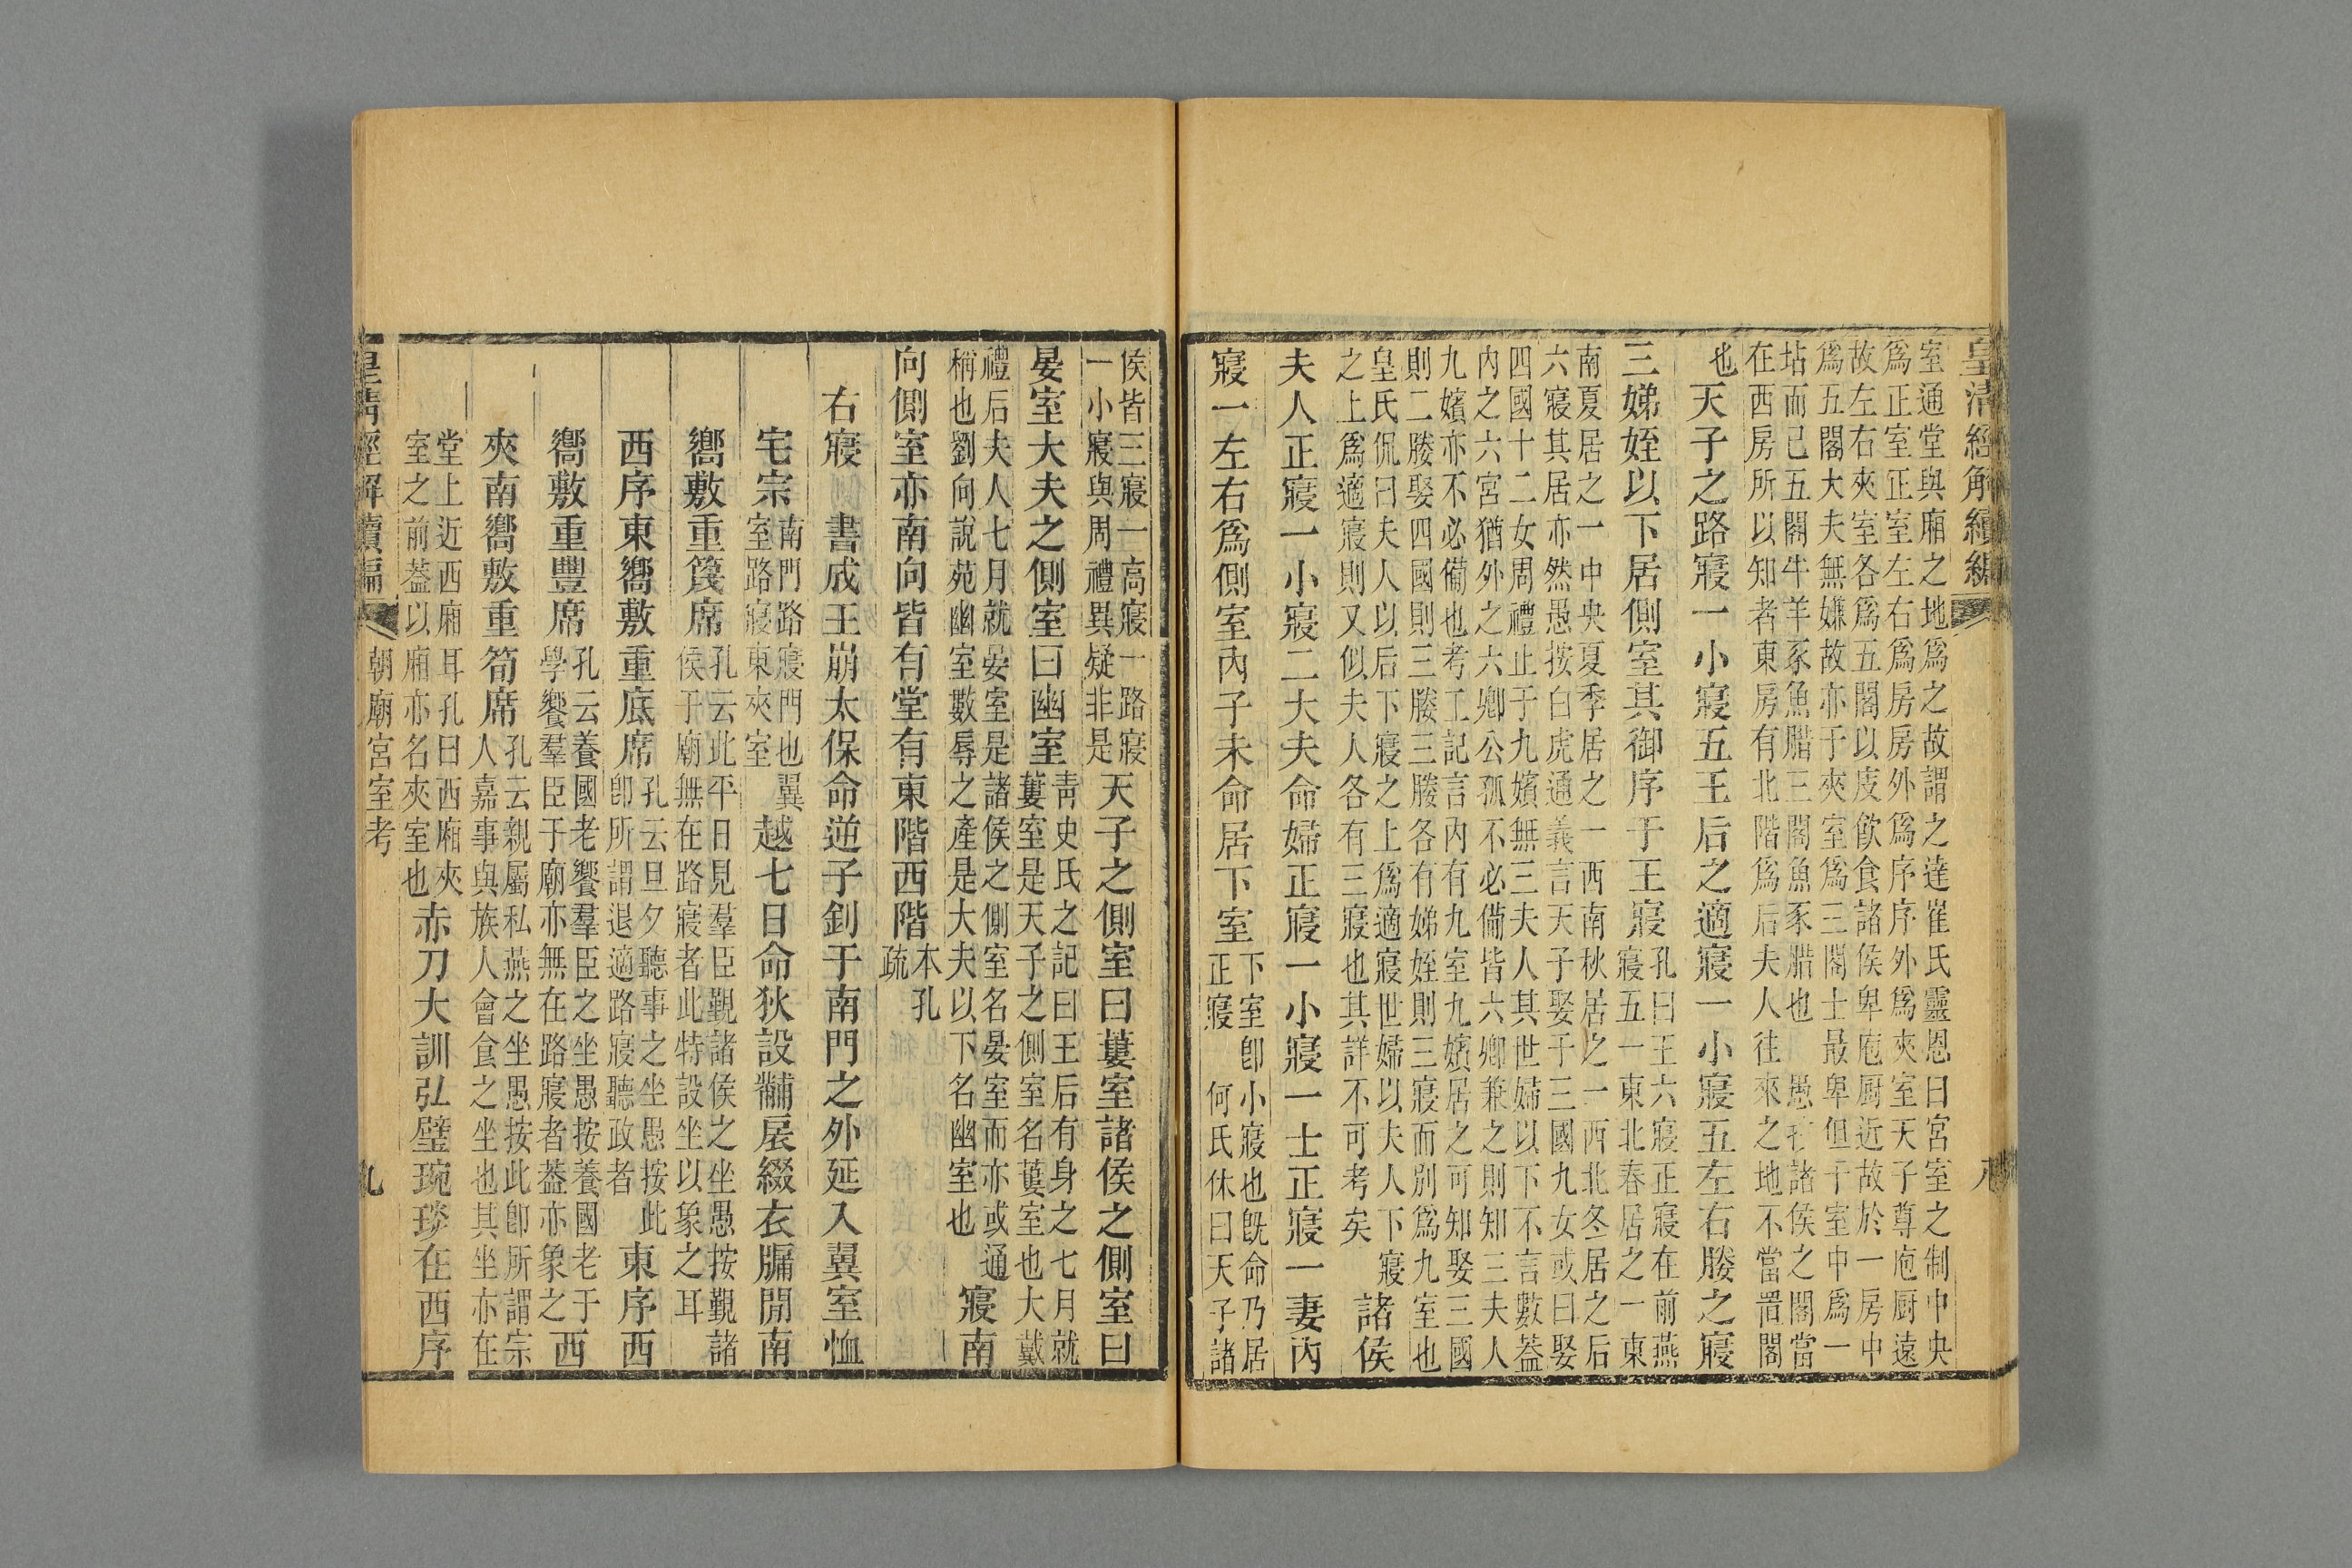 皇清經解續編
八
室通堂與廂之地爲之故謂之達崔氏靈恩曰宮室之制中央
爲正室正室左右爲房房外爲序序外爲夾室天子尊庖厨遠
故左右夾室各爲五閣以庋飮食諸侯卑庖厨近故於一房中
爲五閣大夫無嫌故亦于夾室爲三閣士最卑但于室中爲一
坫而已五閣牛羊豕魚腊三閣魚豕腊也 愚 諸侯之閣當
在西房所以知者東房有北階爲后夫人往來之地不當置閣
也
天子之路寢一小寢五王后之適寢一小寢五左右媵之寢
三娣姪以下居側室其御序于王寢
孔曰王六寢正寢在前燕
寢五一東北春居之一東
南夏居之一中央夏季居之一西南秋居之一西北冬居之后
六寢其居亦然愚按白虎通義言天子娶于三國九女或曰娶
四國十二女周禮止于九嬪無三夫人其世婦以下不言數葢
內之六宮猶外之六卿公孤不必備皆六卿兼之則知三夫人
九嬪亦不必備也考工記言內有九室九嬪居之可知娶三國
則二媵娶四國則三媵三媵各有娣姪則三寢而別爲九室也
皇氏侃曰夫人以后下寢之上爲適寢世婦以夫人下寢
之上爲適寢則又似夫人各有三寢也其詳不可考矣
諸侯
夫人正寢一小寢二大夫命婦正寢一小寢一士正寢一妻內
寢一左右爲側室內子未命居下室
下室卽小寢也旣命乃居
正寢 何氏休曰天子諸
侯皆三寢一高寢一路寢
一小寢與周禮異疑非是
天子之側室曰蔞室諸侯之側室曰
晏室大夫之側室曰幽室
靑史氏之記曰王后有身之七月就
蔞室是天子之側室名蔞室也大戴
禮后夫人七月就晏室是諸侯之側室名晏室而亦或通
稱也劉向說苑幽室數辱之產是大夫以下名幽室也
寢南
向側室亦南向皆有堂有東階西階
本孔
疏
右寢
書成王崩太保命逆子釗于南門之外延入翼室恤
宅宗
南門路寢門也翼
室路寢東夾室
越七日命狄設黼扆綴衣牖閒南
嚮敷重篾席
孔云此平日見羣臣覲諸侯之坐愚按覲諸
侯于廟無在路寢者此特設坐以象之耳
西序東嚮敷重底席
孔云旦夕聽事之坐愚按此
卽所謂退適路寢聽政者
東序西
嚮敷重豐席
孔云養國老饗羣臣之坐愚按養國老于
學饗羣臣于廟亦無在路寢者葢亦象之
西
夾南嚮敷重筍席
孔云親屬私燕之坐愚按此卽所謂宗
人嘉事與族人會食之坐也其坐亦在
堂上近西廂耳孔曰西廂夾
室之前葢以廂亦名夾室也
赤刀大訓弘璧琬琰在西序
皇淸經解續編
朝廟宮室考
九